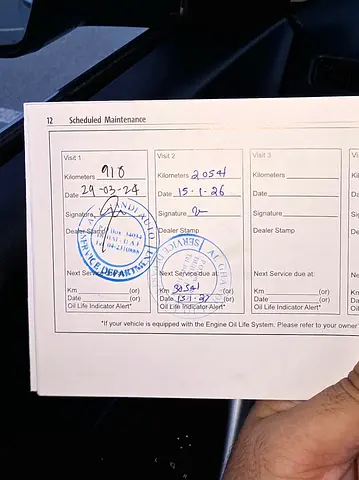 12 Scheduled Maintenance
Visit 1
Kilometers 910
Date 29-03-24
Signature
Dealer Stamp
SERVICE DEPARTMENT
Next Service due at:
Km (or)
Date (or)
Oil Life Indicator Alert*
Visit 2
Kilometers 20541
Date 15-1-26
Signature
Dealer Stamp
Next Service due at:
Km 30541 (or)
Date 15-1-27 (or)
Oil Life Indicator Alert*
Visit 3
Kilometers
Date
Signature
Dealer Stamp
Next Service due at:
Km (or)
Date (or)
Oil Life Indicator Alert*
Vi
Ki
Da
Si
De
Ne
Km
Da
Oil
*If your vehicle is equipped with the Engine Oil Life System. Please refer to your owner'